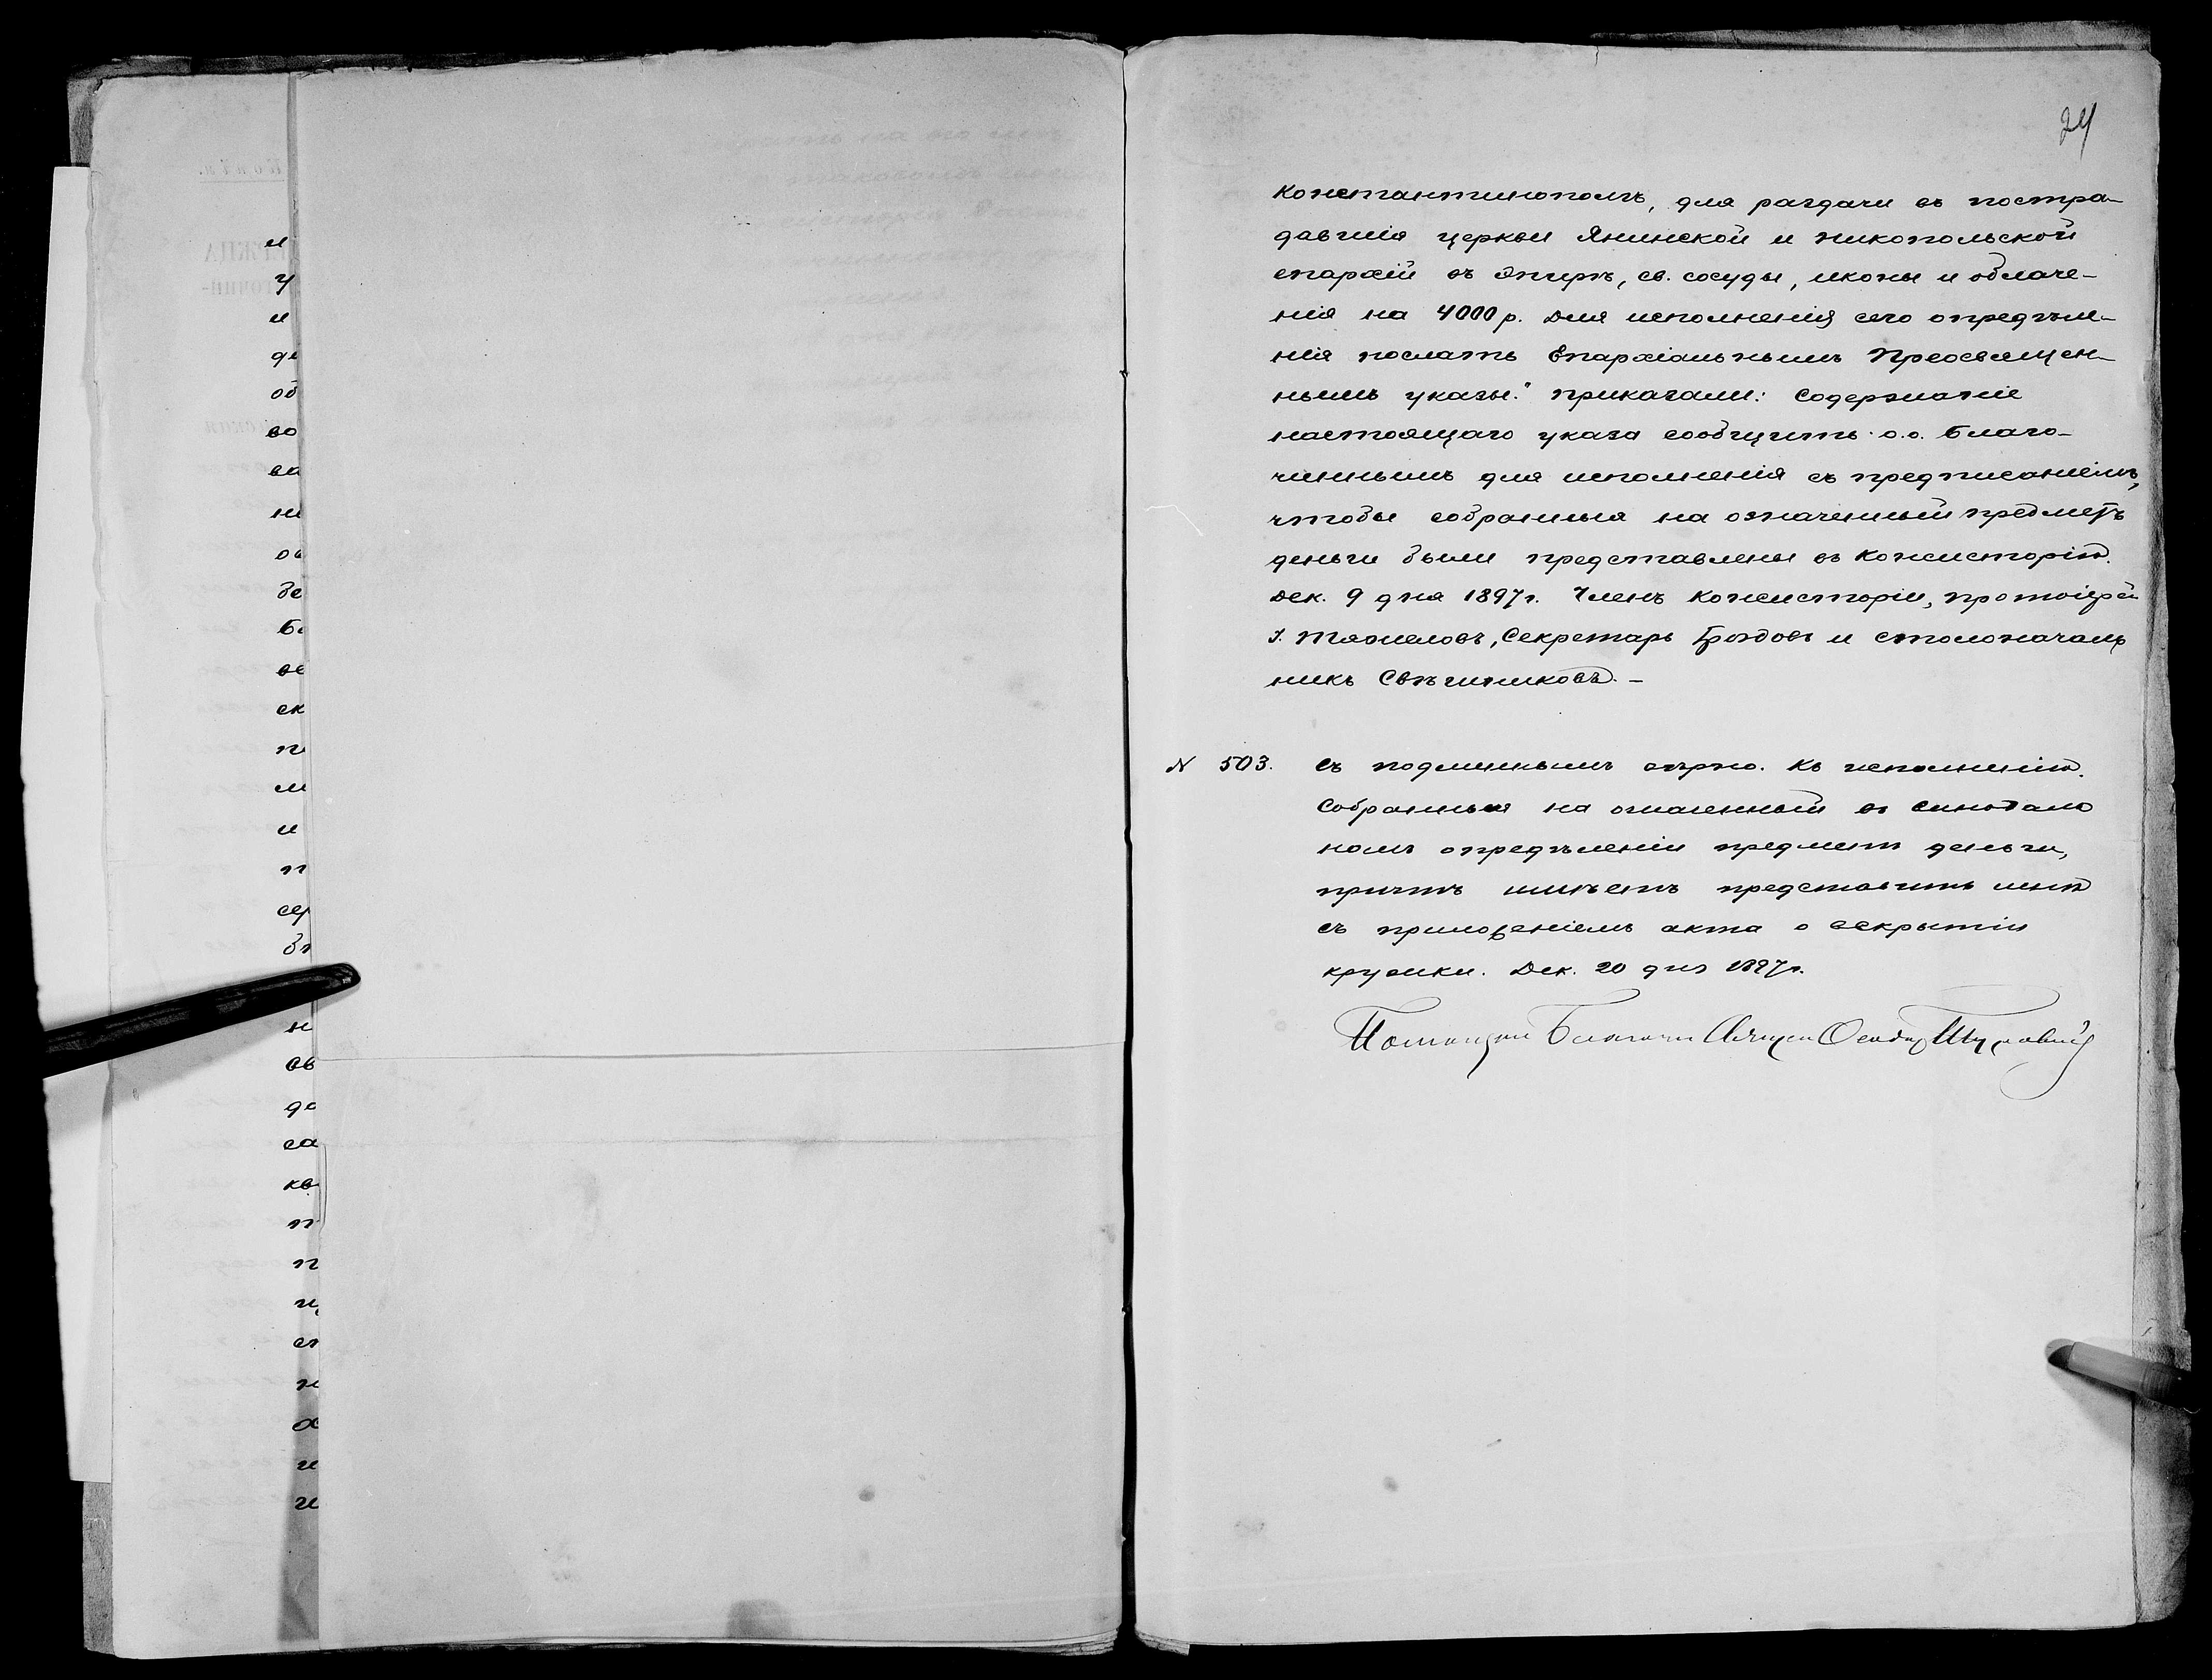 24
Константинополѣ, для раздачи въ постра-
давшія церкви Янинской и Никопольской
епархій въ Эпирѣ, св. сосуды, иконы и облаче-
нія на 4000 р. Для исполненія сего опредѣле-
нія послать Епархіальнымъ Преосвящен-
нымъ указы." Приказали: Содержаніе
настоящаго указа сообщить о.о. Благо-
чиннымъ для исполненія съ предписаніемъ,
чтобы собранныя на означенный предметъ
деньги были представлены въ Консисторію.
Дек. 9 дня 1897 г. Членъ Консисторіи, протоіерей
І. Тяжеловъ, Секретарь и столоначаль
никъ
N 503. Съ подлиннымъ вѣрно. Къ исполненію.
Собранныя на означенный въ синодаль
номъ опредѣленіи предметъ деньги,
причтъ имѣетъ представить мнѣ
съ приложеніемъ акта о вскрытіи
кружки. Дек. 20 дня 1897 г.
и
у
и
де
об
во
ва
ни
ов
бе
Бл
ве
ск
п
м
и
п
сер
бл
н
св
до
са
кв
п
п
щ
ст
н
и